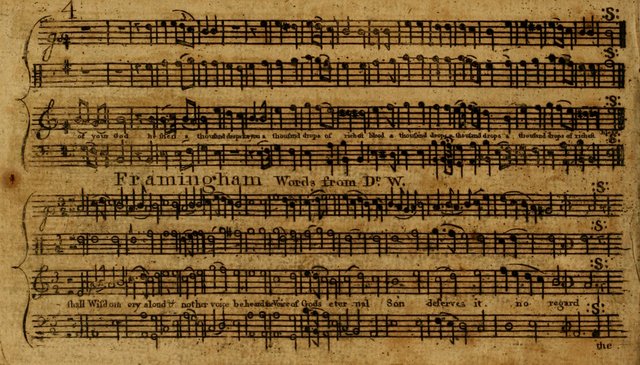 4
of your God he shed a thousand drops for you a thousand drops of richest blood a thousand drops a thousand drops a thousand drops of richest
Framingham Words from Dr. W.
shall Wisdom cry aloud & not her voice be heard the Voice of Gods eternal Son deserves it no regard
the